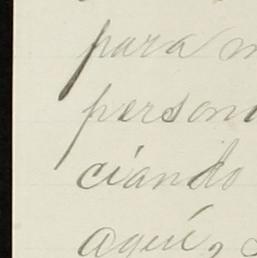 para m
person
ciando
aquí,